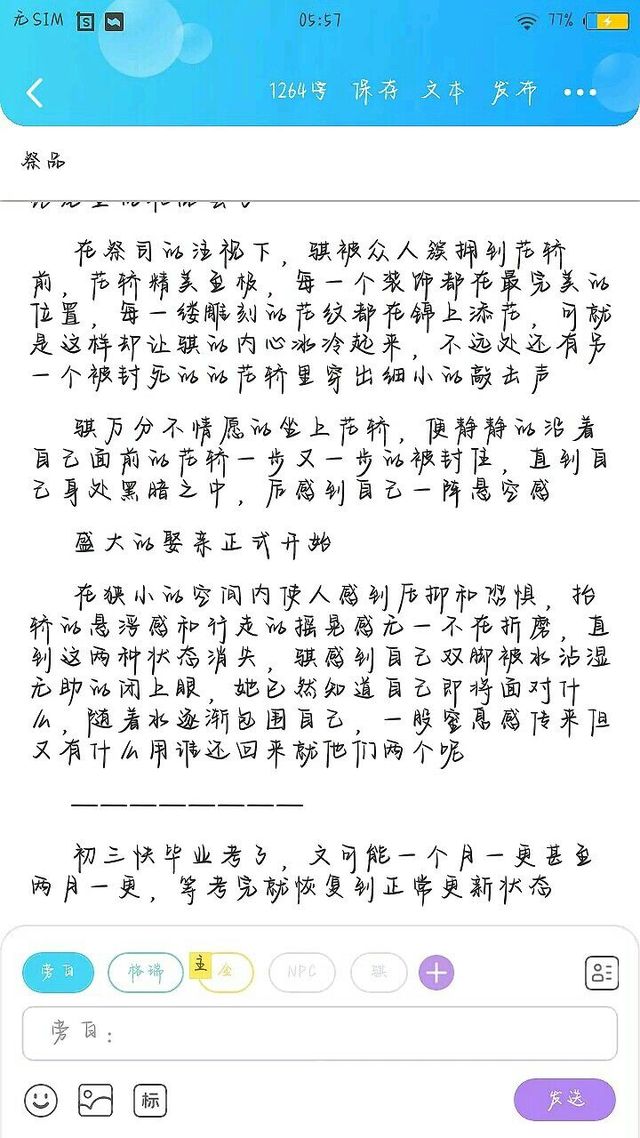 无SIM 05:57 77%
1264字 保存 文本 发布
祭品
在祭司的注视下，骐被众人簇拥到花轿
前，花轿精美至极，每一个装饰都在最完美的
位置，每一缕雕刻的花纹都在锦上添花，可就
是这样却让骐的内心冰冷起来，不远处还有另
一个被封死的的花轿里穿出细小的敲击声
骐万分不情愿的坐上花轿，便静静的沿着
自己面前的花轿一步又一步的被封住，直到自
己身处黑暗之中，后感到自己一阵悬空感
盛大的娶亲正式开始
在狭小的空间内使人感到压抑和恐惧，抬
轿的悬浮感和行走的摇晃感无一不在折磨，直
到这两种状态消失，骐感到自己双脚被水沾湿
无助的闭上眼，她已然知道自己即将面对什
么，随着水逐渐包围自己，一股窒息感传来但
又有什么用谁还回来就他们两个呢
————————
初三快毕业考了，文可能一个月一更甚至
两月一更，等考完就恢复到正常更新状态
旁白 格瑞 主 金 NPC 骐
旁白：
标 发送